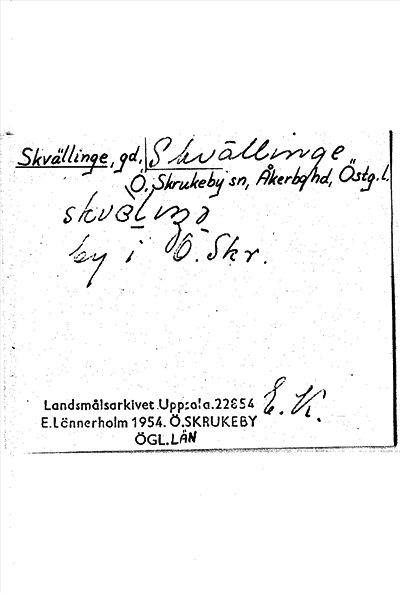 Skvällinge, gd, Skvällinge
Ö. Skrukeby sn, Åkerbo hd, Östg. l.
skväling
by i Ö. Skr.
Landsmålsarkivet Uppsala. 22854 E. K.
E. Lönnerholm 1954. Ö. SKRUKEBY
ÖGL. LÄN